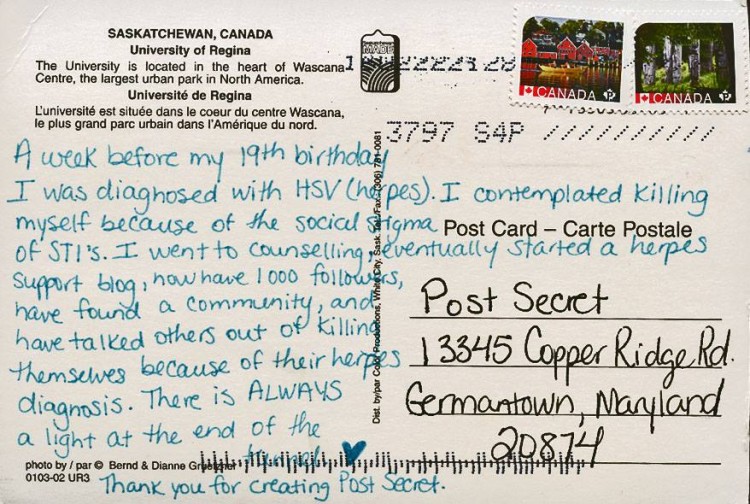 SASKATCHEWAN, CANADA
University of Regina
The University is located in the heart of Wascana
Centre, the largest urban park in North America.
Université de Regina
L'université est située dans le coeur du centre Wascana,
le plus grand parc urbain dans l'Amérique du nord.
MADE
CANADA P
CANADA P
3797 S4P
A week before my 19th birthday
I was diagnosed with HSV (herpes). I contemplated killing
myself because of the social stigma
of STI's. I went to counselling, eventually started a herpes
support blog, now have 1000 followers,
have found a community, and
have talked others out of killing
themselves because of their herpes
diagnosis. There is ALWAYS
a light at the end of the
tunnel
Thank you for creating Post Secret.
Post Card – Carte Postale
Post Secret
13345 Copper Ridge Rd.
Germantown, Maryland
20874
Dist. by/par Productions, White City, Sask. Tel./Fax: (306) 781-0081
photo by / par © Bernd & Dianne
0103-02 UR3